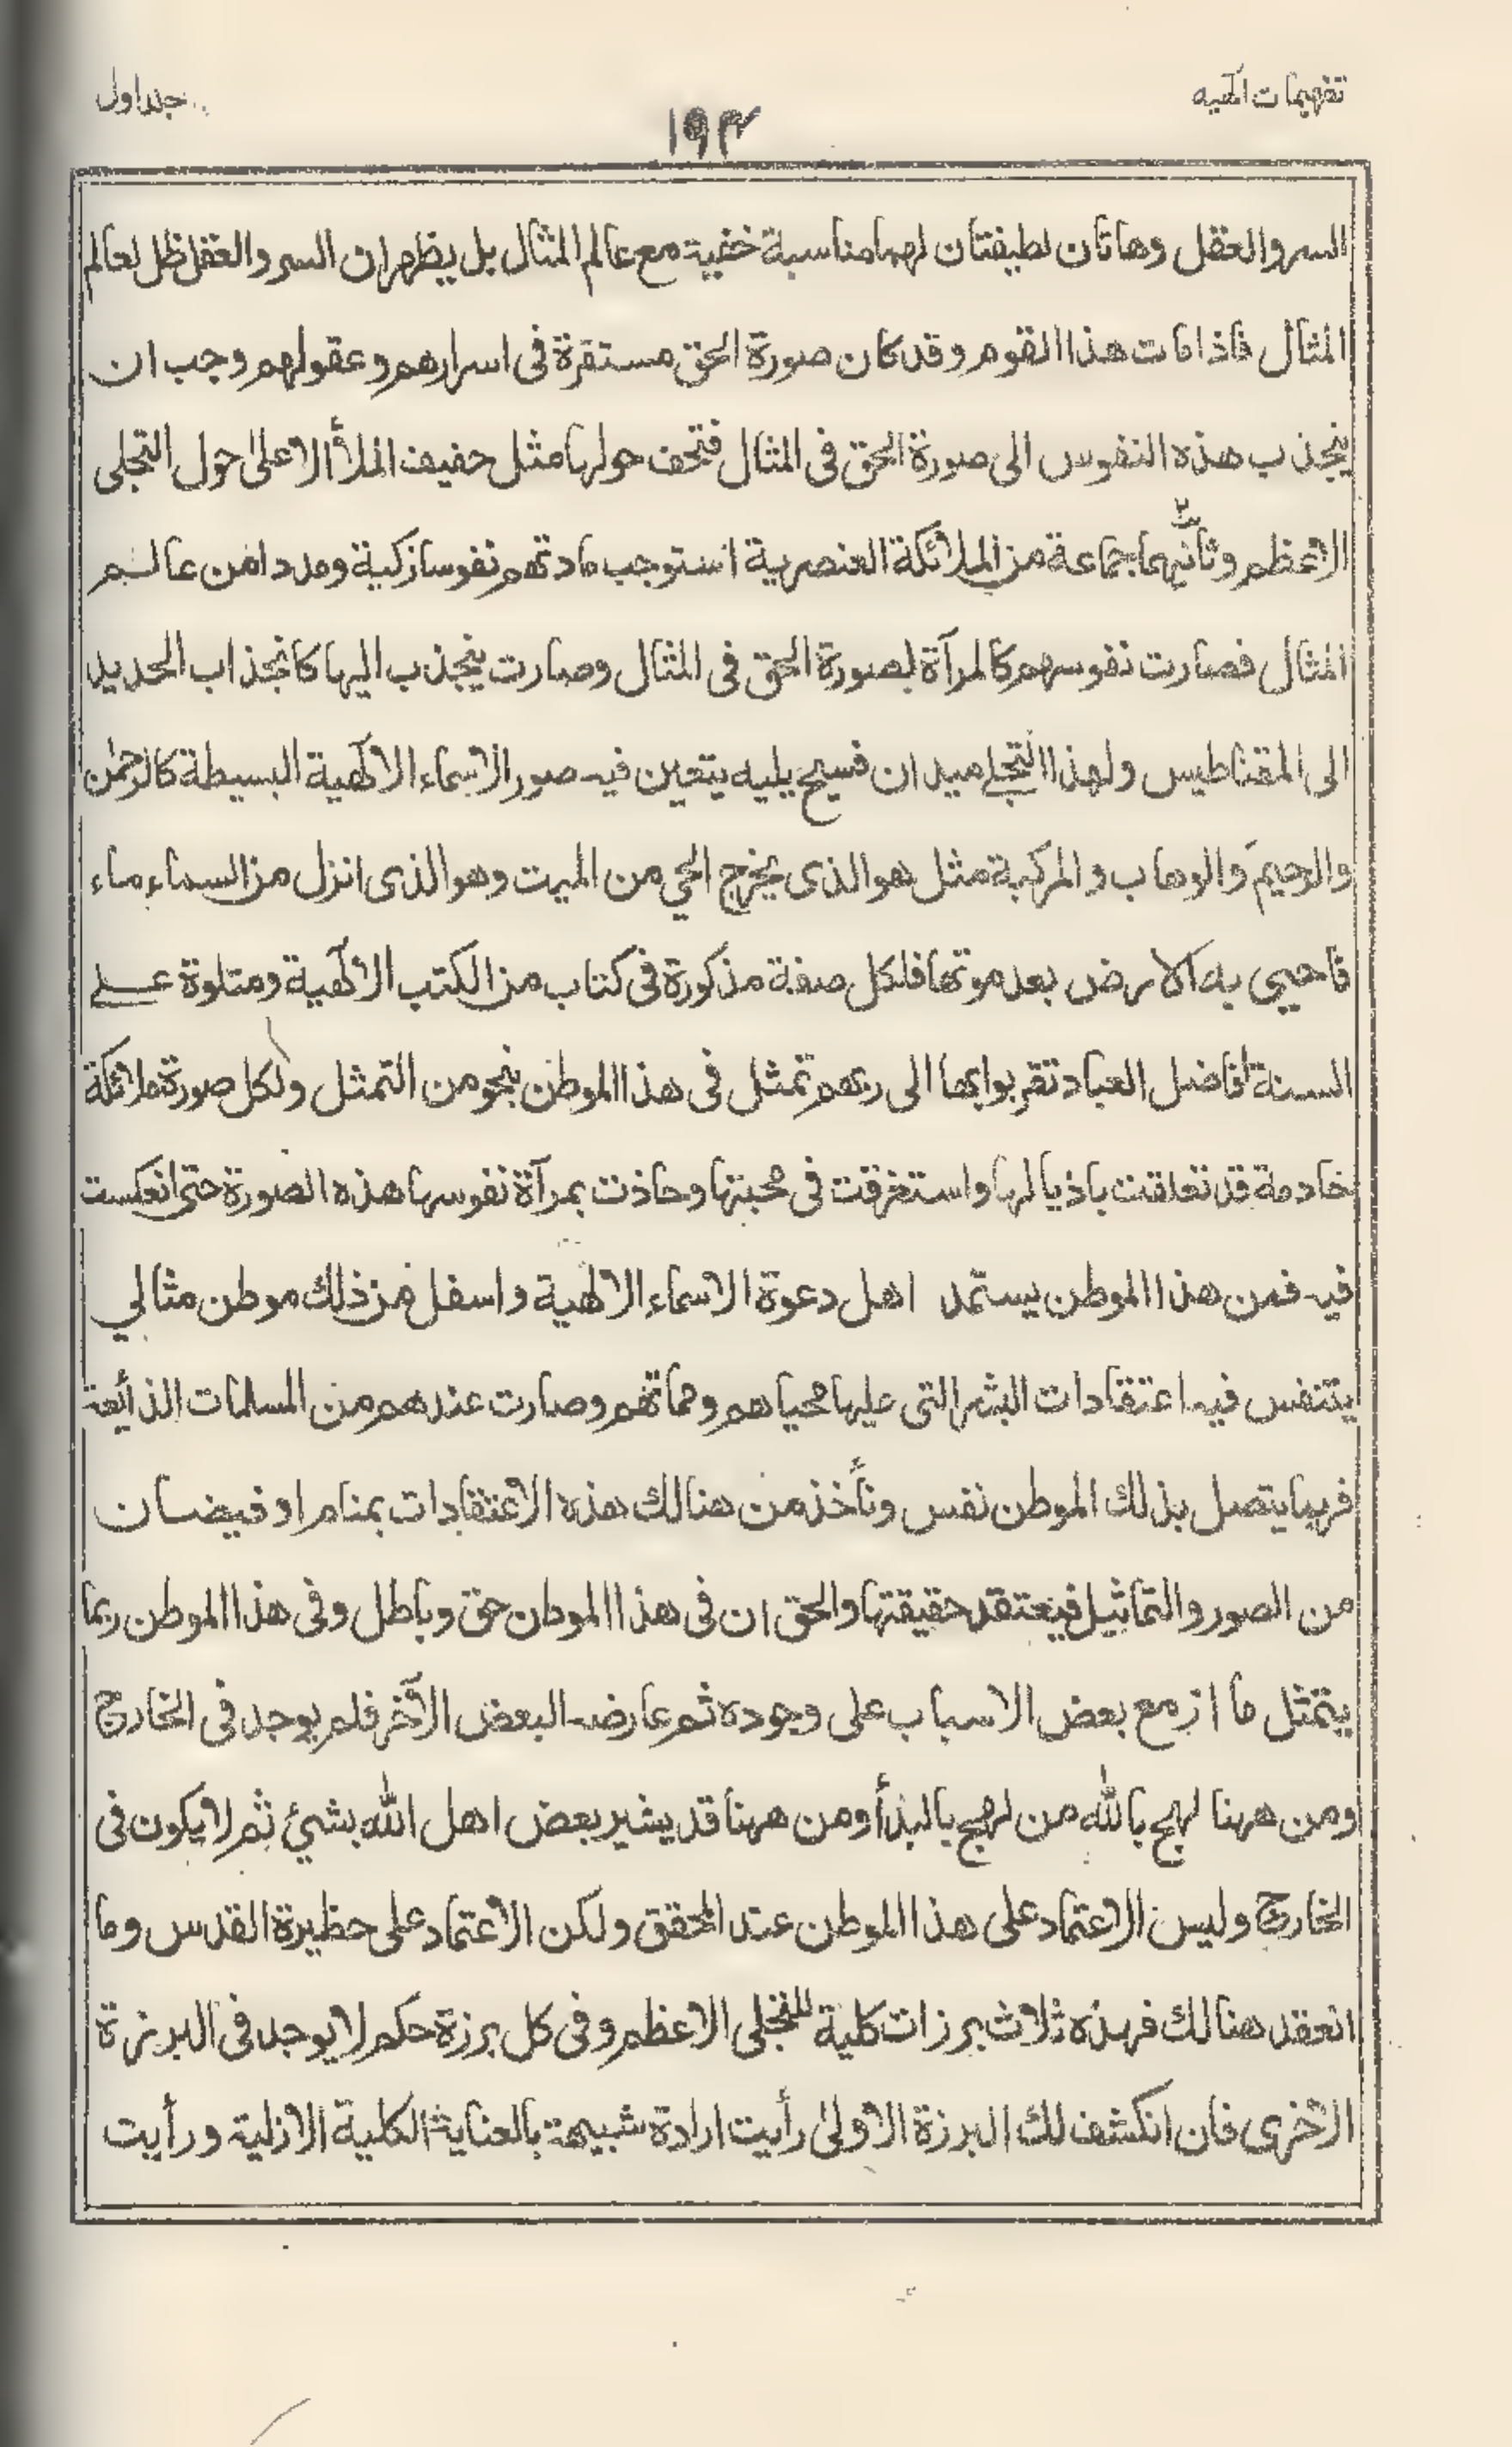 تفهيمات الٰهيه
١٩٣
جلد اول
السر والعقل وهاتان لطيفتان لهما مناسبة خفية مع عالم المثال بل يظهر ان السر والعقل ظل لعالم
المثال فاذا مات هذا القوم وقد كان صورة الحق مستقرة فى اسرارهم وعقولهم وجب ان
ينجذب هذه النفوس الى صورة الحق فى المثال فتحف حولها مثل حفيف الملأ الاعلى حول التجلى
الاعظم وثانيهما جماعة من الملائكة العنصرية استوجب مادتهم نفوسا زكية ومددا من عالم
المثال فصارت نفوسهم كالمرآة لصورة الحق فى المثال وصارت ينجذب اليها كانجذاب الحديد
الى المقناطيس ولهذا التجلے ميدان فسيح يليه يتعين فيه صور الاسماء الالٰهية البسيطة كالرحمٰن
والرحيم والوهاب والمركبة مثل هو الذى يخرج الحي من الميت وهو الذى انزل من السماء ماء
فاحيى به الارض بعد موتها فلكل صفة مذكورة فى كتاب من الكتب الالٰهية ومتلوة عـــلے
السنة افاضل العباد تقربوا بها الى ربهم تمثل فى هذا الموطن بنحو من التمثل ولكل صورة ملائكة
خادمة قد تعلقت باذيالها واستغرقت فى محبتها وحاذت بمرآة نفوسها هذه الصورة حتى انعكست
فيه فمن هذا الموطن يستمد اهل دعوة الاسماء الالٰهية واسفل من ذلك موطن مثالي
يتنفس فيه اعتقادات البشر التى عليها محياهم ومماتهم وصارت عندهم من المسلمات الذائعة
فربما يتصل بذلك الموطن نفس وتأخذ من هنالك هذه الاعتقادات بمنام او فيضان
من الصور والتماثيل فيعتقد حقيقتها والحق ان فى هذا الموطن حق وباطل وفى هذا الموطن ربما
يتمثل ما ازمع بعض الاسباب على وجوده ثم عارضه البعض الآخر فلم يوجد فى الخارج
ومن ههنا لهج بالله من لهج بالبدأ ومن ههنا قد يشير بعض اهل الله بشيئ ثم لا يكون فى
الخارج وليس الاعتماد على هذا الموطن عند المحقق ولكن الاعتماد على حظيرة القدس وما
انعقد هنالك فهذه ثلاث برزات كلية للتجلى الاعظم وفى كل برزة حكم لا يوجد فى البرزة
الاخرى فان انكشف لك البرزة الاولىٰ رأيت ارادة شبيهة بالعناية الكلية الازلية ورأيت